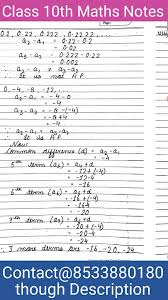 Class 10th Maths Notes
0.2, 0.22, 0.222, 0.2222, ....
a₂ - a₁ = 0.22 - 0.2
= 0.02
a₃ - a₂ = 0.222 - 0.22
= 0.002
∴ a₂ - a₁ ≠ a₃ - a₂
It is not A.P.
0, -4, -8, -12, ....
a₂ - a₁ = -4 - 0
= -4
a₃ - a₂ = -8 - (-4)
= -4
∴ a₂ - a₁ = a₃ - a₂
It is A.P.
Now
Common difference (d) = a₂ - a₁
= -4
5th term (a₅) = a₄ + d
= -12 + (-4)
= -12 - 4
= -16
6th term (a₆) = a₅ + d
= -16 + (-4)
= -16 - 4
= -20
7th term (a₇) = a₆ + d
= -20 + (-4)
= -20 - 4
= -24
∴ 3 more terms are -16, -20, -24
Contact@8533880180
though Description